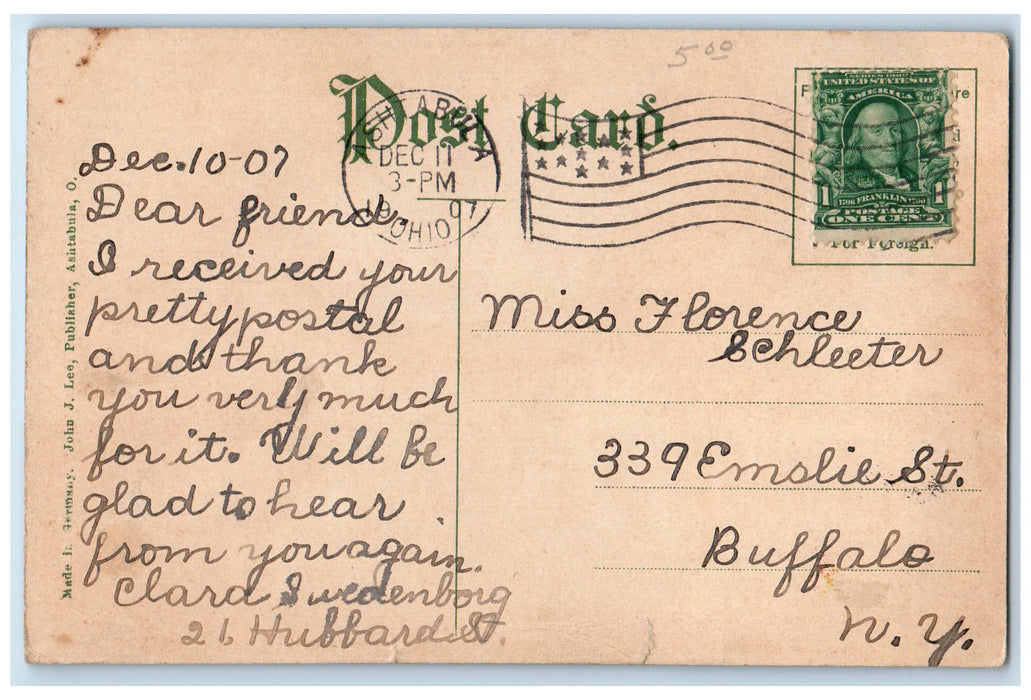 5 00
Post Card.
ASHTABULA
DEC 11
3-PM
1907
OHIO
SERIES 1902
UNITED STATES OF
AMERICA
1 1
1706 FRANKLIN 1790
POSTAGE
ONE CENT
For Foreign.
Dec. 10-07
Dear friend.
I received your
pretty postal
and thank
you very much
for it. Will be
glad to hear
from you again.
Clara Swedenborg
21 Hubbard St.
Miss Florence
Schleeter
339 Emslie St.
Buffalo
N. Y.
Made in Germany. John J. Lee, Publisher, Ashtabula, O.